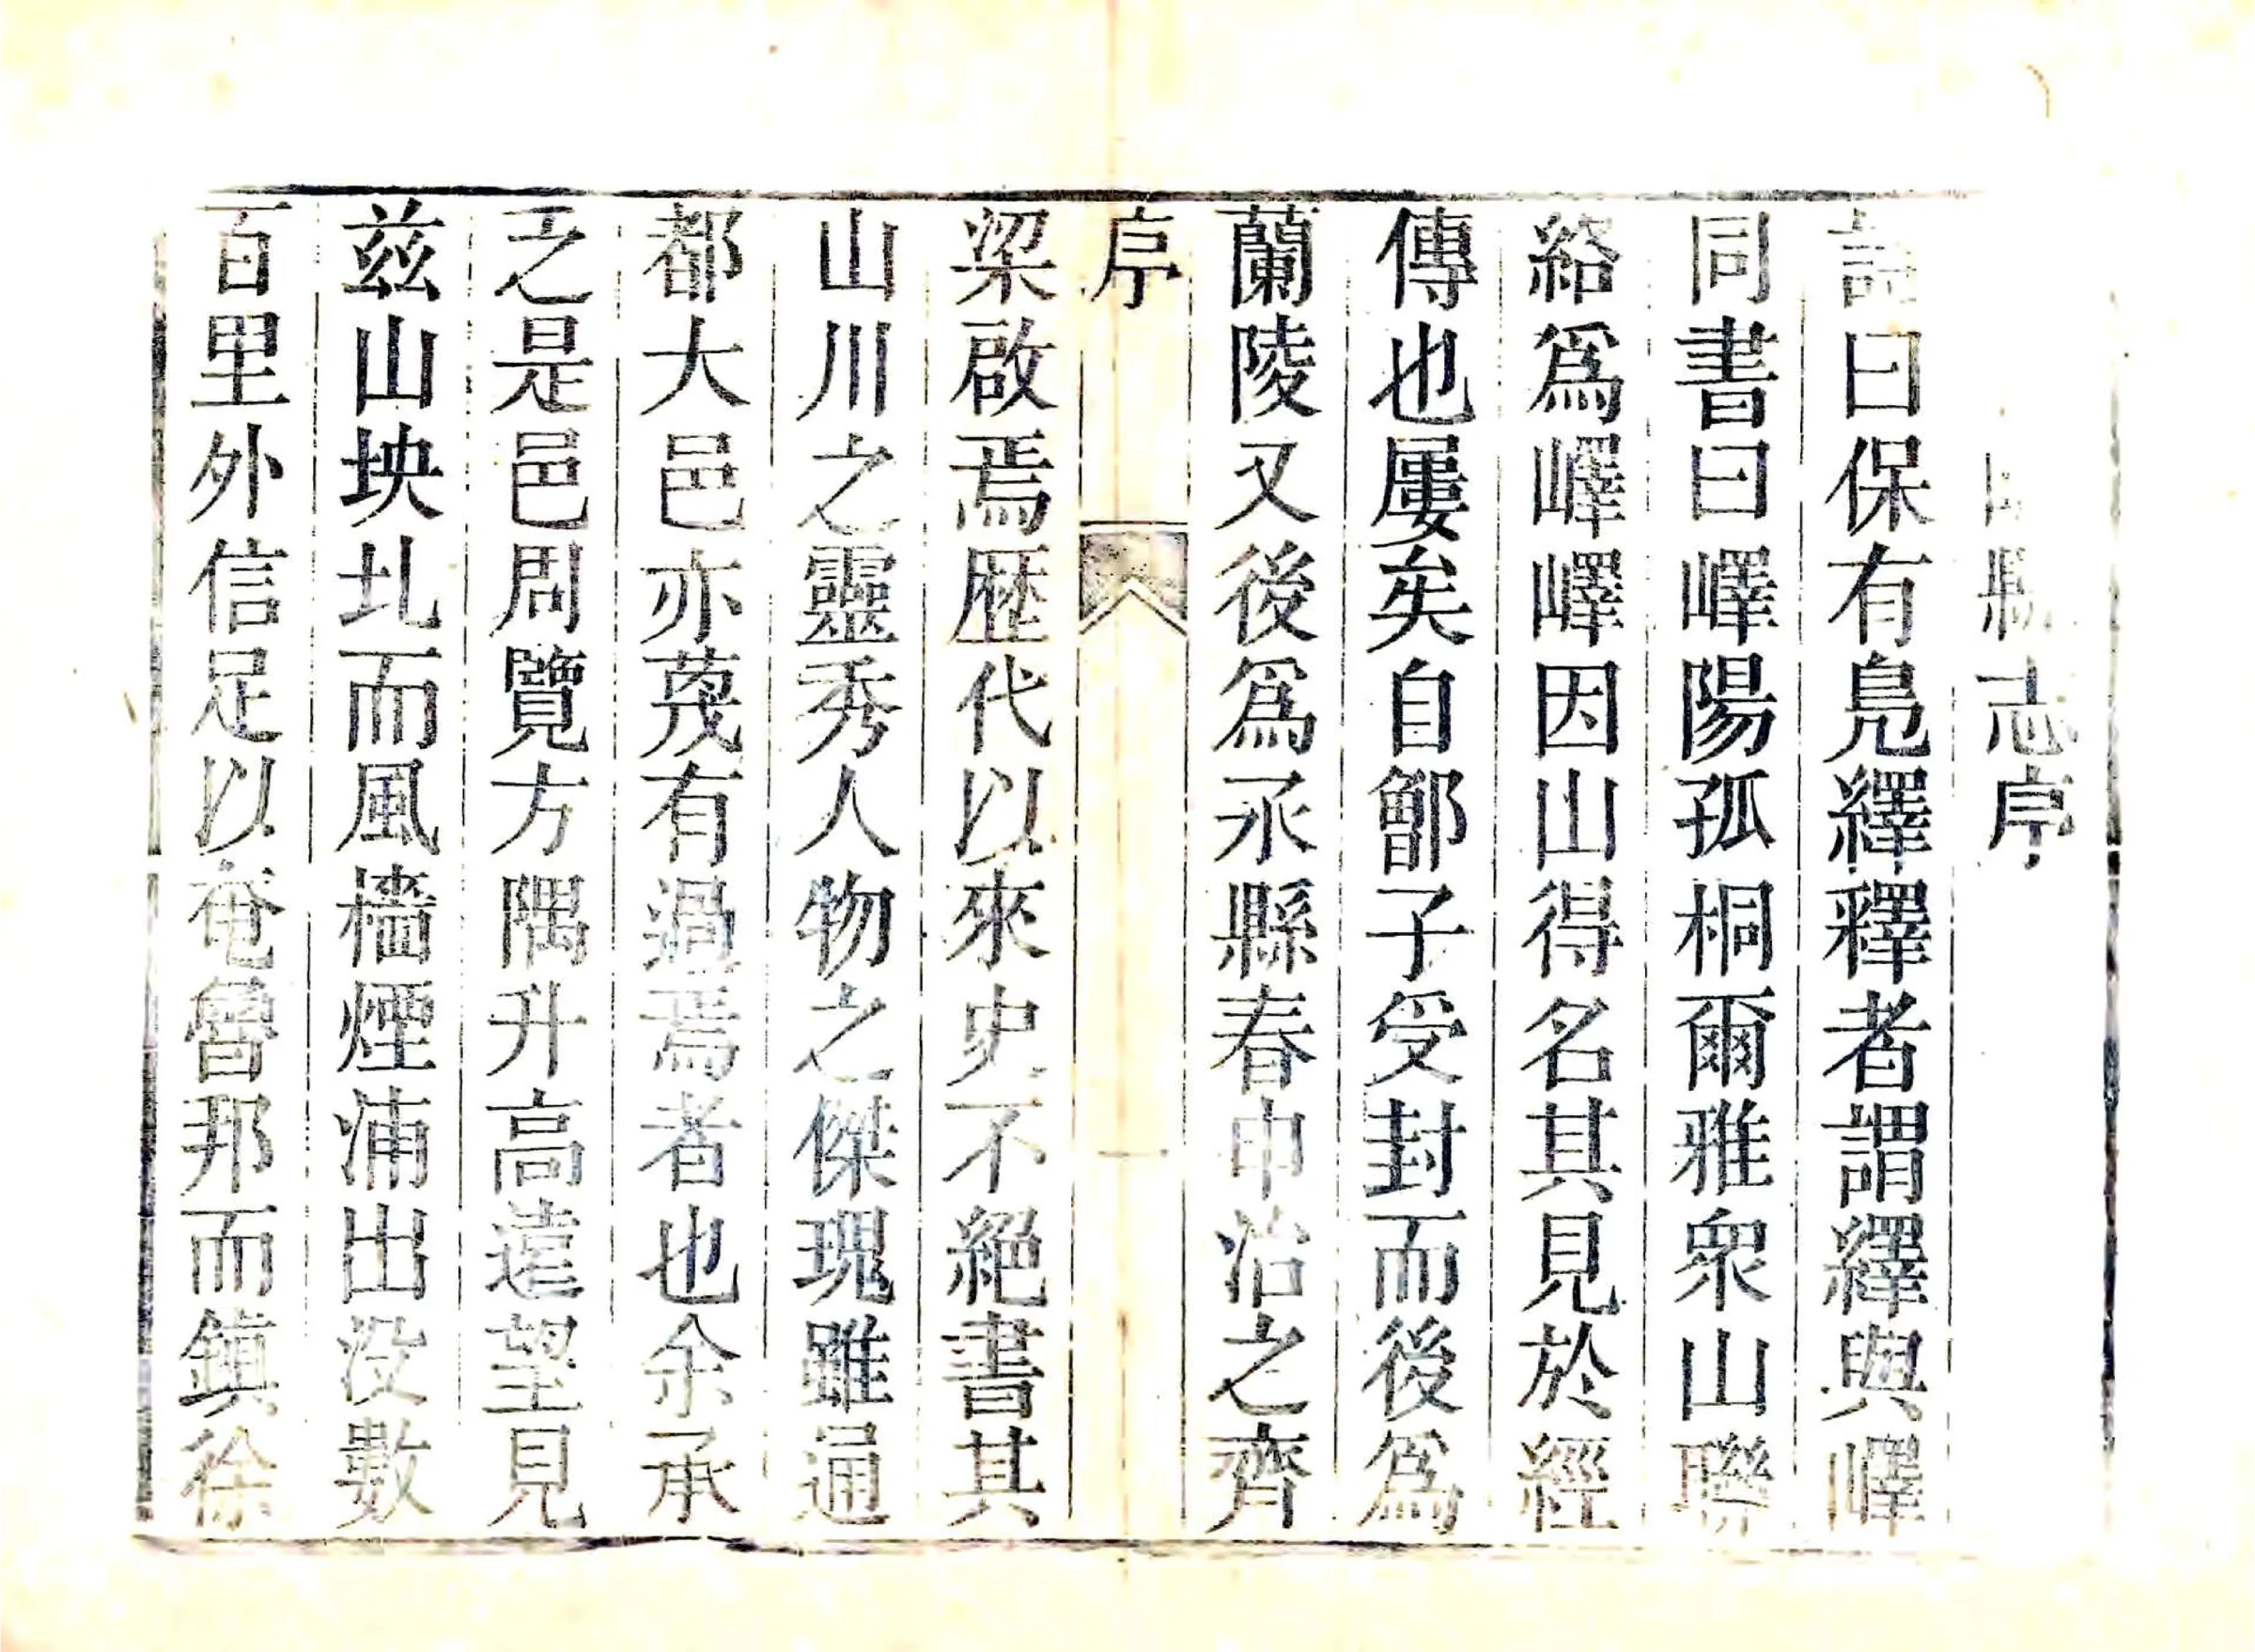 縣志序
詩曰保有鳧繹釋者謂繹與嶧
同書曰嶧陽孤桐爾雅衆山聯
絡爲嶧嶧因山得名其見於經
傳也屢矣自鄫子受封而後爲
蘭陵又後爲丞縣春申治之齊
序
梁啟焉歷代以來史不絕書其
山川之靈秀人物之傑瑰雖通
都大邑亦蔑有過焉者也余承
乏是邑周覽方隅升高遠望見
兹山坱圠而風檣煙浦出没數
百里外信足以奄魯邦而鎮徐